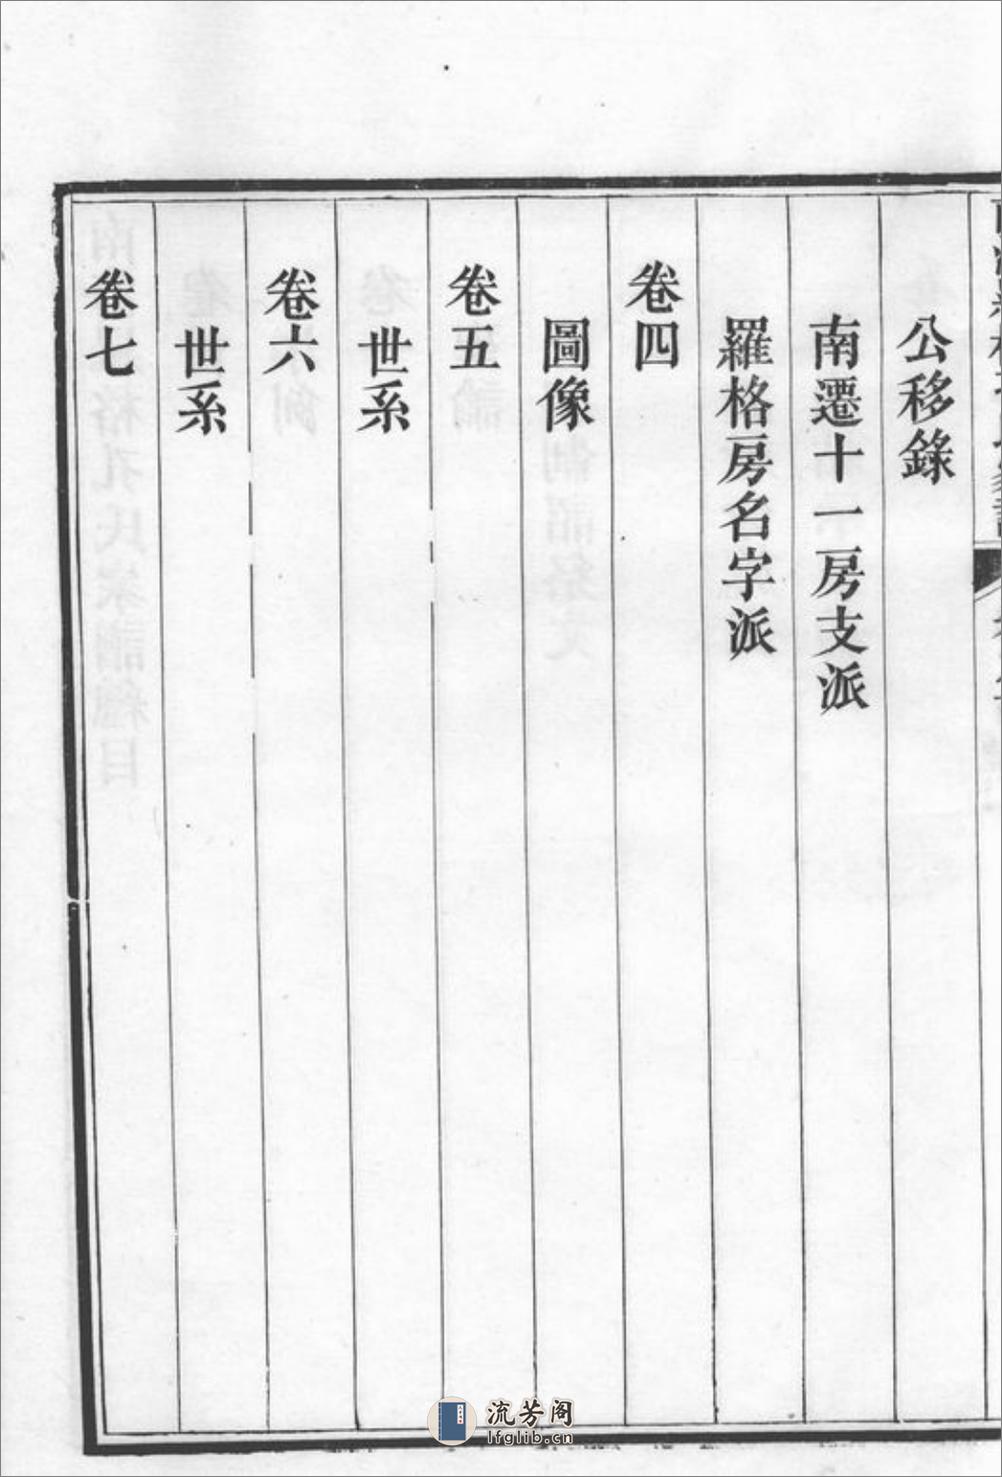 公移錄
南遷十一房支派
羅格房名字派
卷四
圖像
卷五
世系
卷六
世系
卷七
流芳阁
lfglib.cn